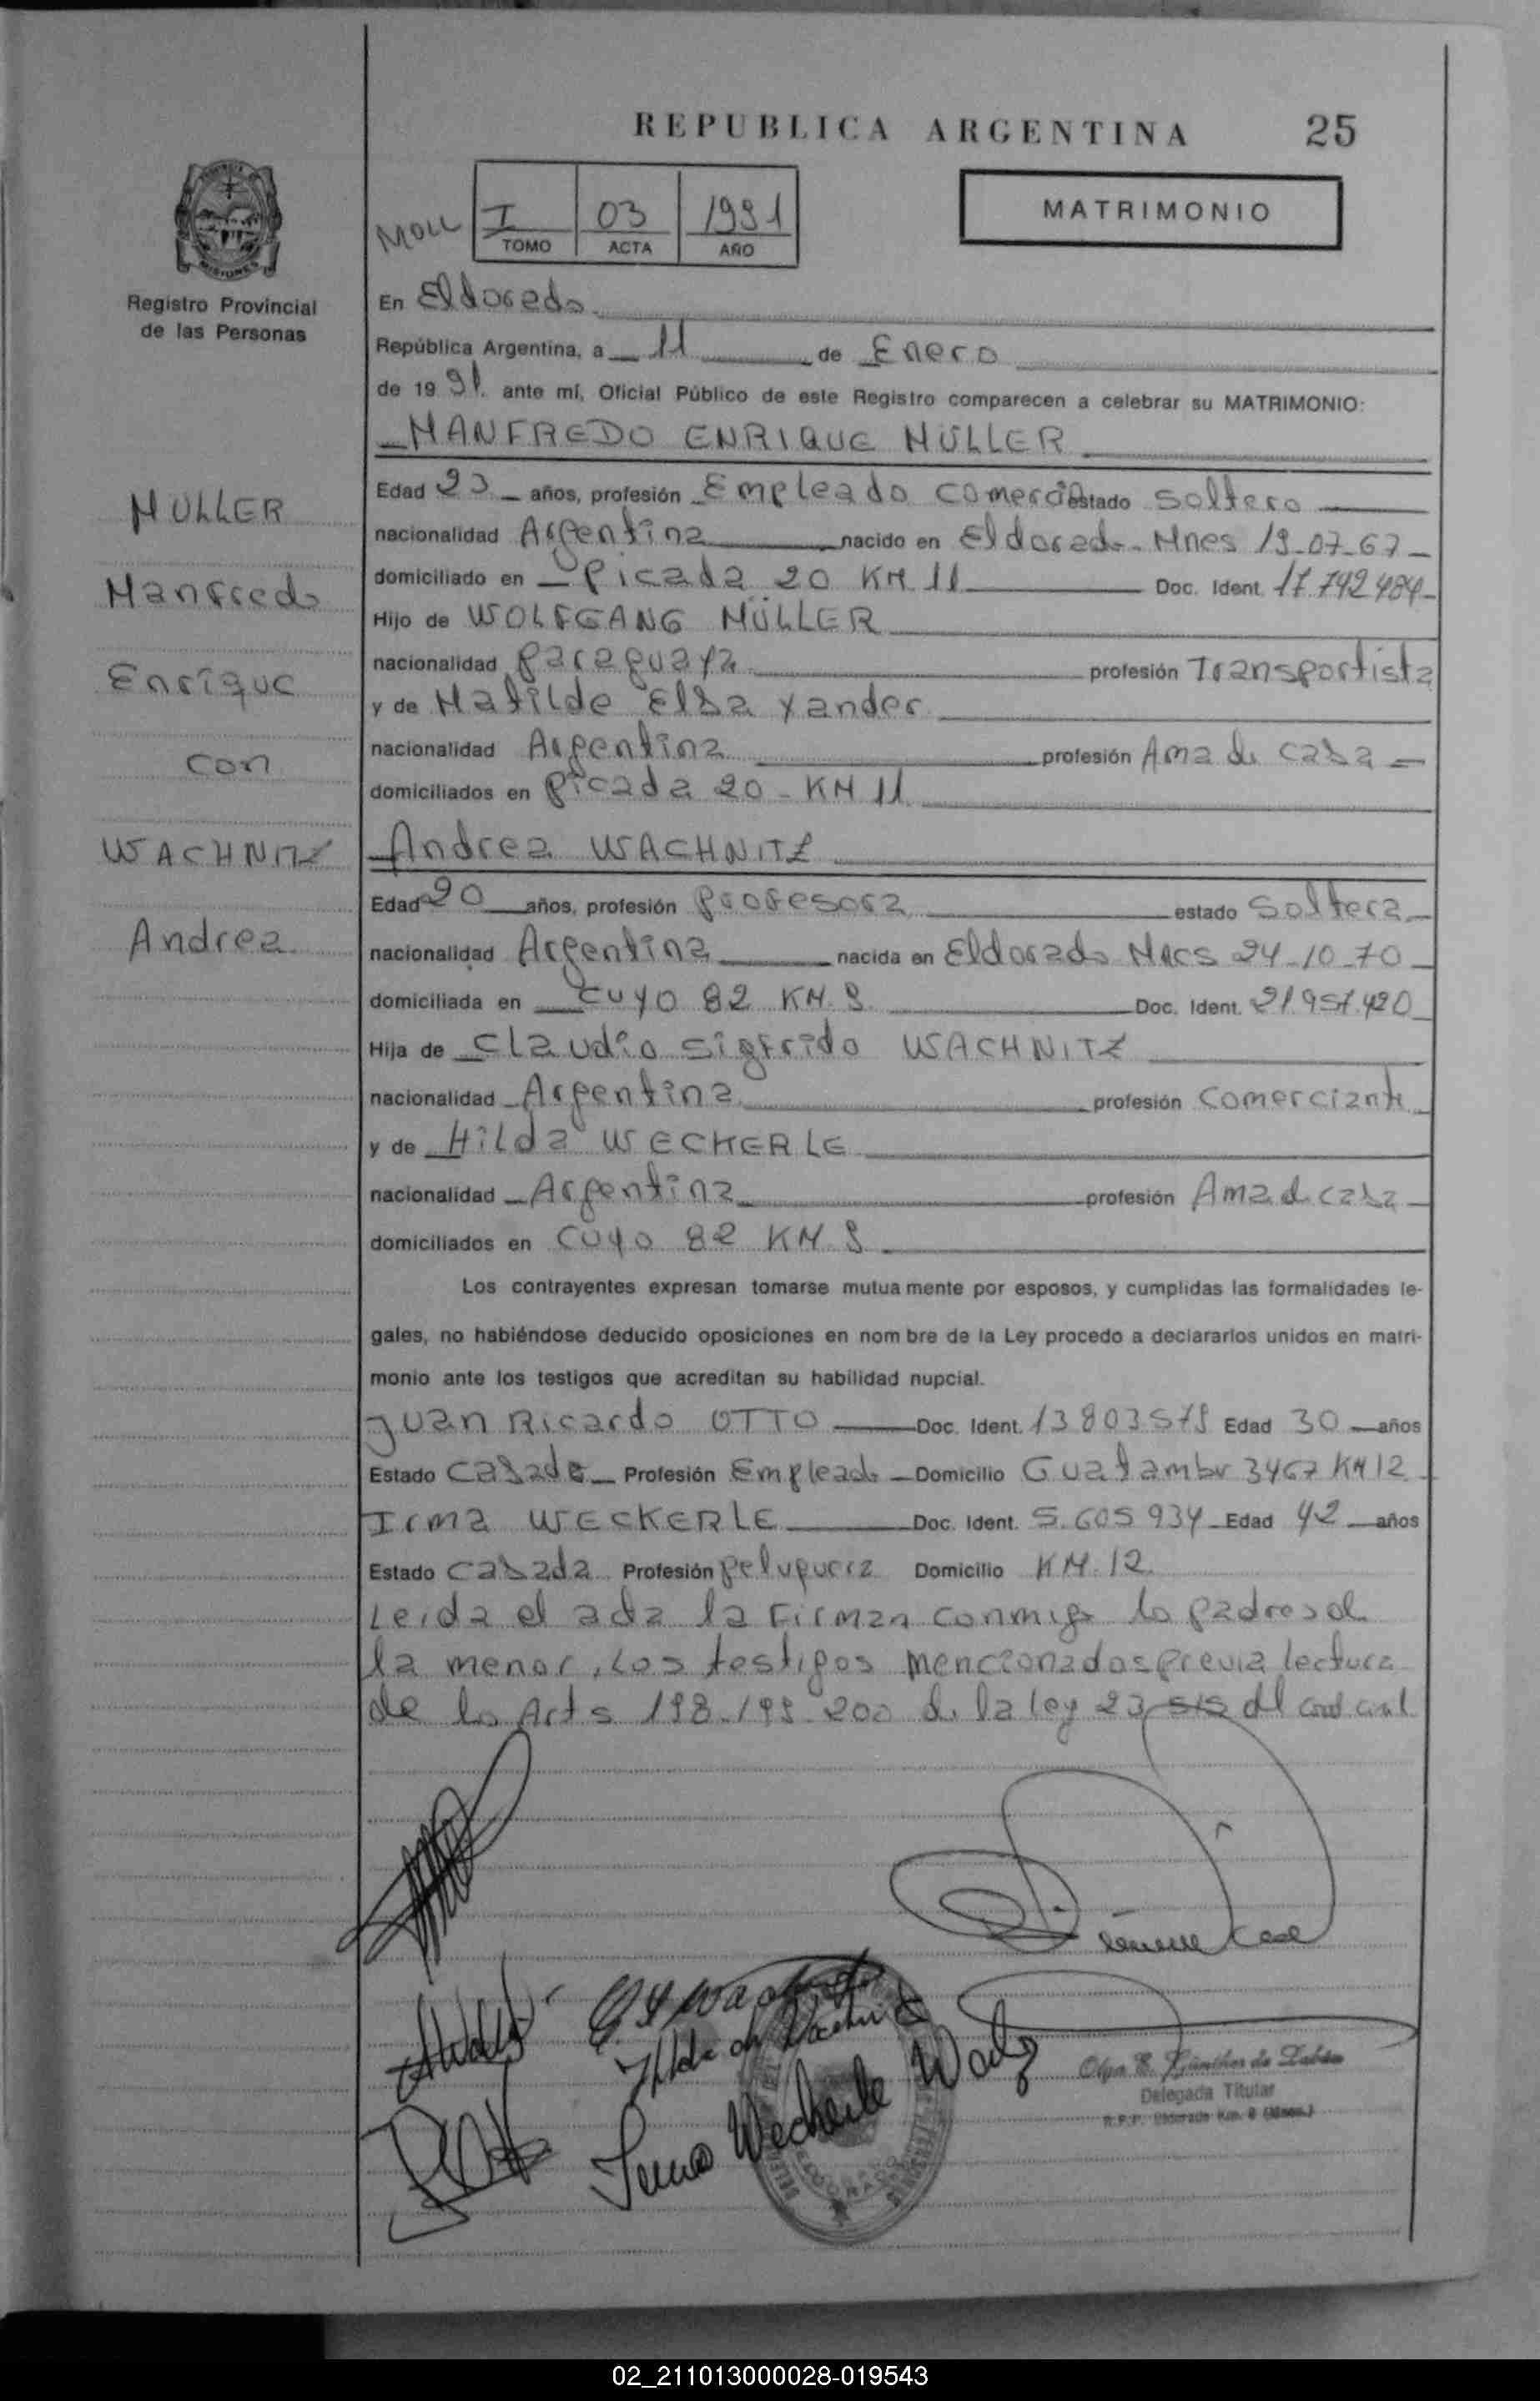 REPUBLICA ARGENTINA 25
MATRIMONIO
MOLL
I 03 1991
TOMO ACTA AÑO
Registro Provincial
de las Personas
En Eldorado
República Argentina, a 11 de Enero
de 19 91. ante mí, Oficial Público de este Registro comparecen a celebrar su MATRIMONIO:
MANFREDO ENRIQUE MÜLLER
Edad 23 años, profesión Empleado comercio estado soltero
nacionalidad Argentina nacido en Eldorado - Mnes 19-07-67
domiciliado en Picada 20 KM 11 Doc. Ident. 17.742.484
Hijo de WOLFGANG MÜLLER
nacionalidad paraguaya profesión Transportista
y de Matilde Elsa Xander
nacionalidad Argentina profesión Ama de casa
domiciliados en picada 20 - KM 11
Andrea WACHNITZ
Edad 20 años, profesión profesora estado soltera
nacionalidad Argentina nacida en Eldorado Mnes 24-10-70
domiciliada en cuyo 82 KM. 9 Doc. Ident. 21.957.420
Hija de Claudio Sigfrido WACHNITZ
nacionalidad Argentina profesión comerciante
y de Hilda WECKERLE
nacionalidad Argentina profesión Ama d casa
domiciliados en cuyo 82 KM 9
MULLER
Manfredo
Enrique
con
WACHNITZ
Andrea
Los contrayentes expresan tomarse mutua mente por esposos, y cumplidas las formalidades le-
gales, no habiéndose deducido oposiciones en nom bre de la Ley procedo a declararlos unidos en matri-
monio ante los testigos que acreditan su habilidad nupcial.
Juan Ricardo OTTO Doc. Ident. 13803579 Edad 30 años
Estado casado Profesión Empleado Domicilio Guatambu 3467 KM 12
Irma WECKERLE Doc. Ident. 5.605 934 Edad 42 años
Estado casada Profesión peluquera Domicilio KM. 12
Leida el acta la firman conmigo lo padres d
la menor, los testigos mencionados previa lectura
de lo Arts 198-199-200 d la ley 23 515 del cod civil
Hilda de Wachnitz
Irma Weckerle
Olga E. Günther de
Delegada Titular
R.P.P. Eldorado Km. 9 (Mnes.)
02_211013000028-019543